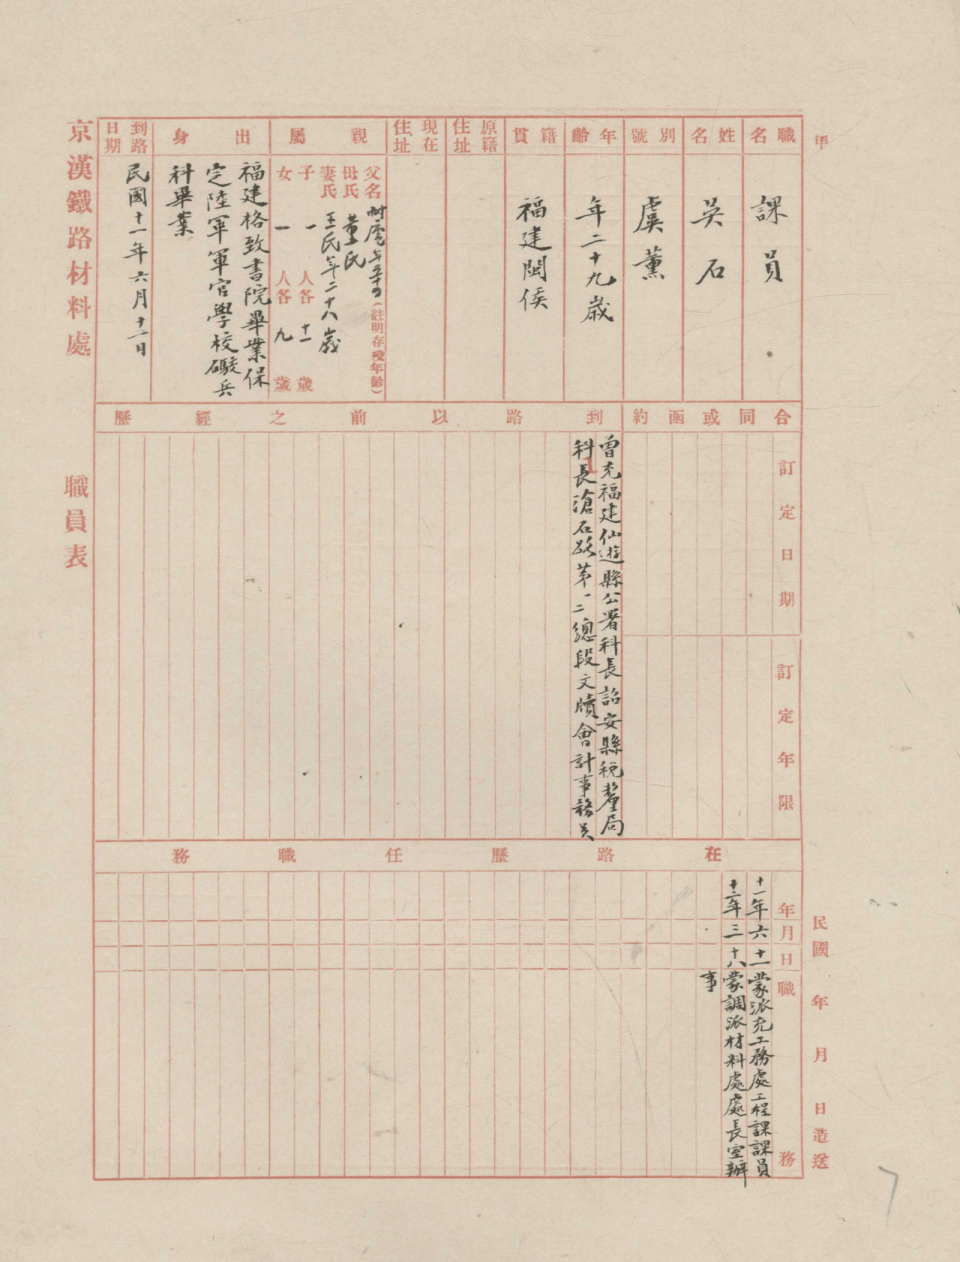 甲
職名
課員
姓名
吳石
別號
虞薰
年齡
年二十九歲
籍貫
福建閩侯
原籍住址
現在住址
親屬
父名 (註明存歿年齡)
母氏 董氏
妻氏 王氏年二十八歲
子 一 人各 十一 歲
女 一 人各 九 歲
出身
福建格致書院畢業保
定陸軍軍官學校礮兵
科畢業
到路日期
民國十一年六月十一日
京漢鐵路材料處 職員表
合同或函約
訂定日期
訂定年限
到路以前之經歷
曾充福建仙遊縣公署科長詔安縣稅釐局
科長滄石路第一二總段文牘會計事務員
在路歷任職務
年 月 日 職務
十一年 六 十一 蒙派充工務處工程課課員
十三年 三 十八 蒙調派材料處處長室辦
事
民國 年 月 日造送
7